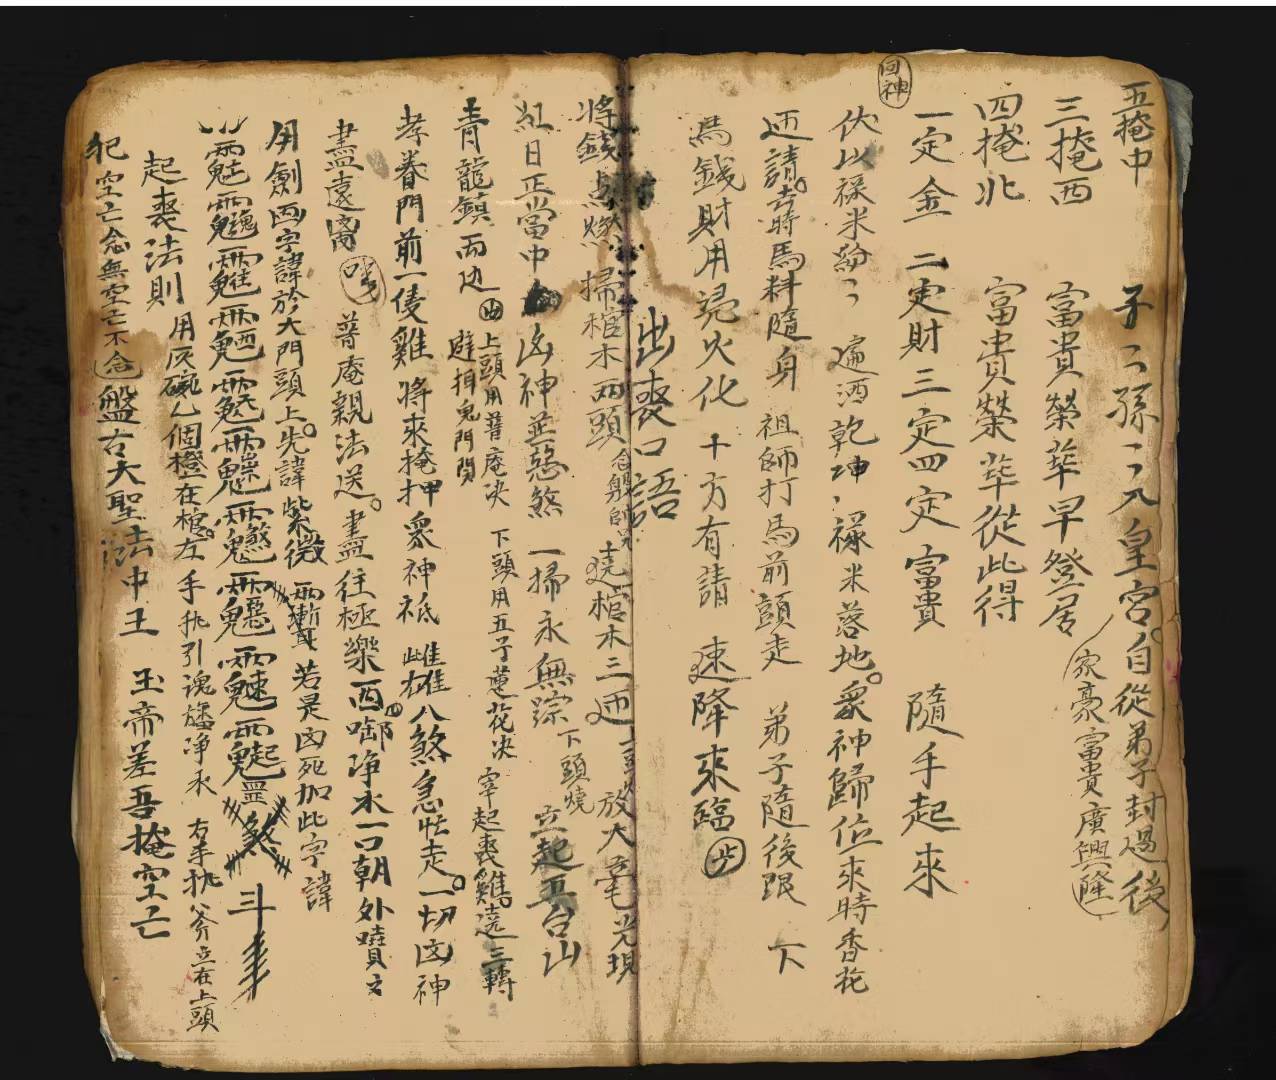 五掩中　子〻孫〻入皇宮。自從弟子封過後
家豪富貴廣興隆
三掩西　富貴榮華早登居
四掩北　富貴榮華從此得
一定金　二定財三定四定富貴　隨手起來
回神
伏以祿米紛〻　遍洒乾坤〻祿米落地。眾神歸位來時香花
迊請。去時馬料隨身　祖師打馬前頭走　弟子隨後跟　下
馬錢財用凭火化　十方有請　速降來臨
出喪口語
將錢点燃　掃棺木兩頭　遶棺木三迊　放大毫光現
紅日正當中　凶神並惡煞　一掃永無踪　下頭燒　立起五台山
青龍鎮兩边　上頭用普庵决　下頭用五子蓮花决　宰起喪雞。遶三轉
避掃鬼門関
孝眷門前一隻雞　將來掩押眾神祇　雌雄八煞急忙走。一切凶神
盡遠离　普庵親法送。盡往極樂西　啣净水一口朝外噴文
用劍西字諱於大門頭上。先諱紫微　若是凶死加此字諱
煞　斗
起喪法則　用灰碗乙個橙在棺。左手执引魂旛净水　右手执斧立在上頭
犯空亡念無空亡不念　盤古大聖法中王　玉帝差吾掩空亡